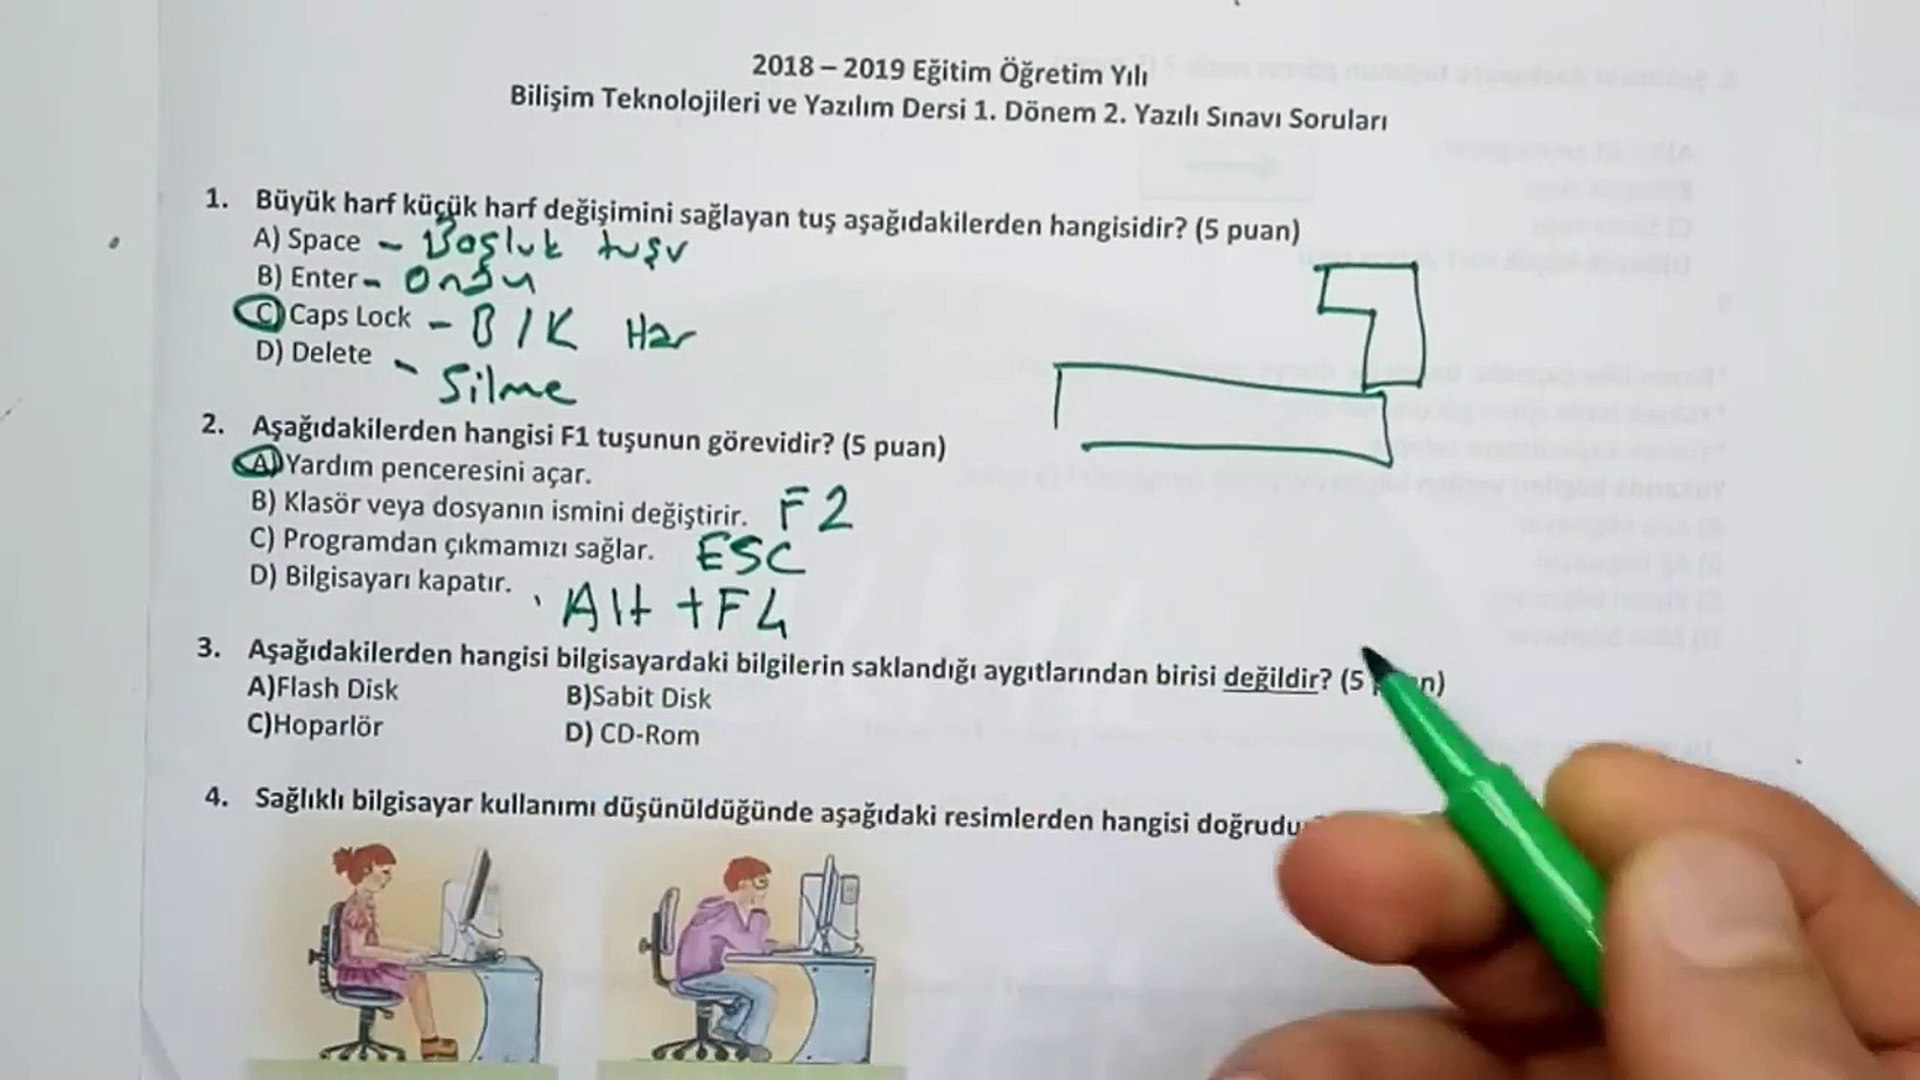 2018 – 2019 Eğitim Öğretim Yılı
Bilişim Teknolojileri ve Yazılım Dersi 1. Dönem 2. Yazılı Sınavı Soruları
1. Büyük harf küçük harf değişimini sağlayan tuş aşağıdakilerden hangisidir? (5 puan)
A) Space - Boşluk tuşu
B) Enter - Onay
C) Caps Lock - B/K Har
D) Delete - Silme
2. Aşağıdakilerden hangisi F1 tuşunun görevidir? (5 puan)
A) Yardım penceresini açar.
B) Klasör veya dosyanın ismini değiştirir. F2
C) Programdan çıkmamızı sağlar. ESC
D) Bilgisayarı kapatır. Alt +F4
3. Aşağıdakilerden hangisi bilgisayardaki bilgilerin saklandığı aygıtlarından birisi değildir? (5
A)Flash Disk B)Sabit Disk
C)Hoparlör D) CD-Rom
4. Sağlıklı bilgisayar kullanımı düşünüldüğünde aşağıdaki resimlerden hangisi doğrudu